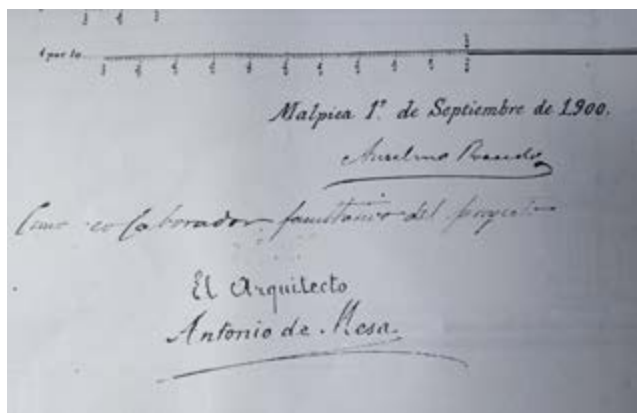 1 por 10
Malpica 1º. de Septiembre de 1.900.
Anselmo
Como colaborador facultativo del proyecto
El Arquitecto
Antonio de Mesa.